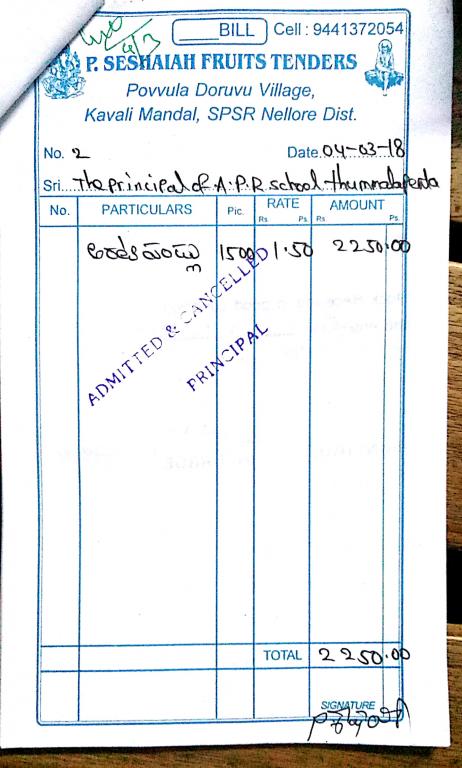 BILL
Cell : 9441372054
P. SESHAIAH FRUITS TENDERS
Povvula Doruvu Village,
Kavali Mandal, SPSR Nellore Dist.
No. 2 Date. 04-03-18
Sri... The principal of A.P.R school-thummalapenta
No. PARTICULARS Pic. RATE AMOUNT
Rs Ps Rs Ps
అరటి పండ్లు 1500 1.50 2250.00
ADMITTED & CANCELLED
PRINCIPAL
TOTAL 2250.00
SIGNATURE